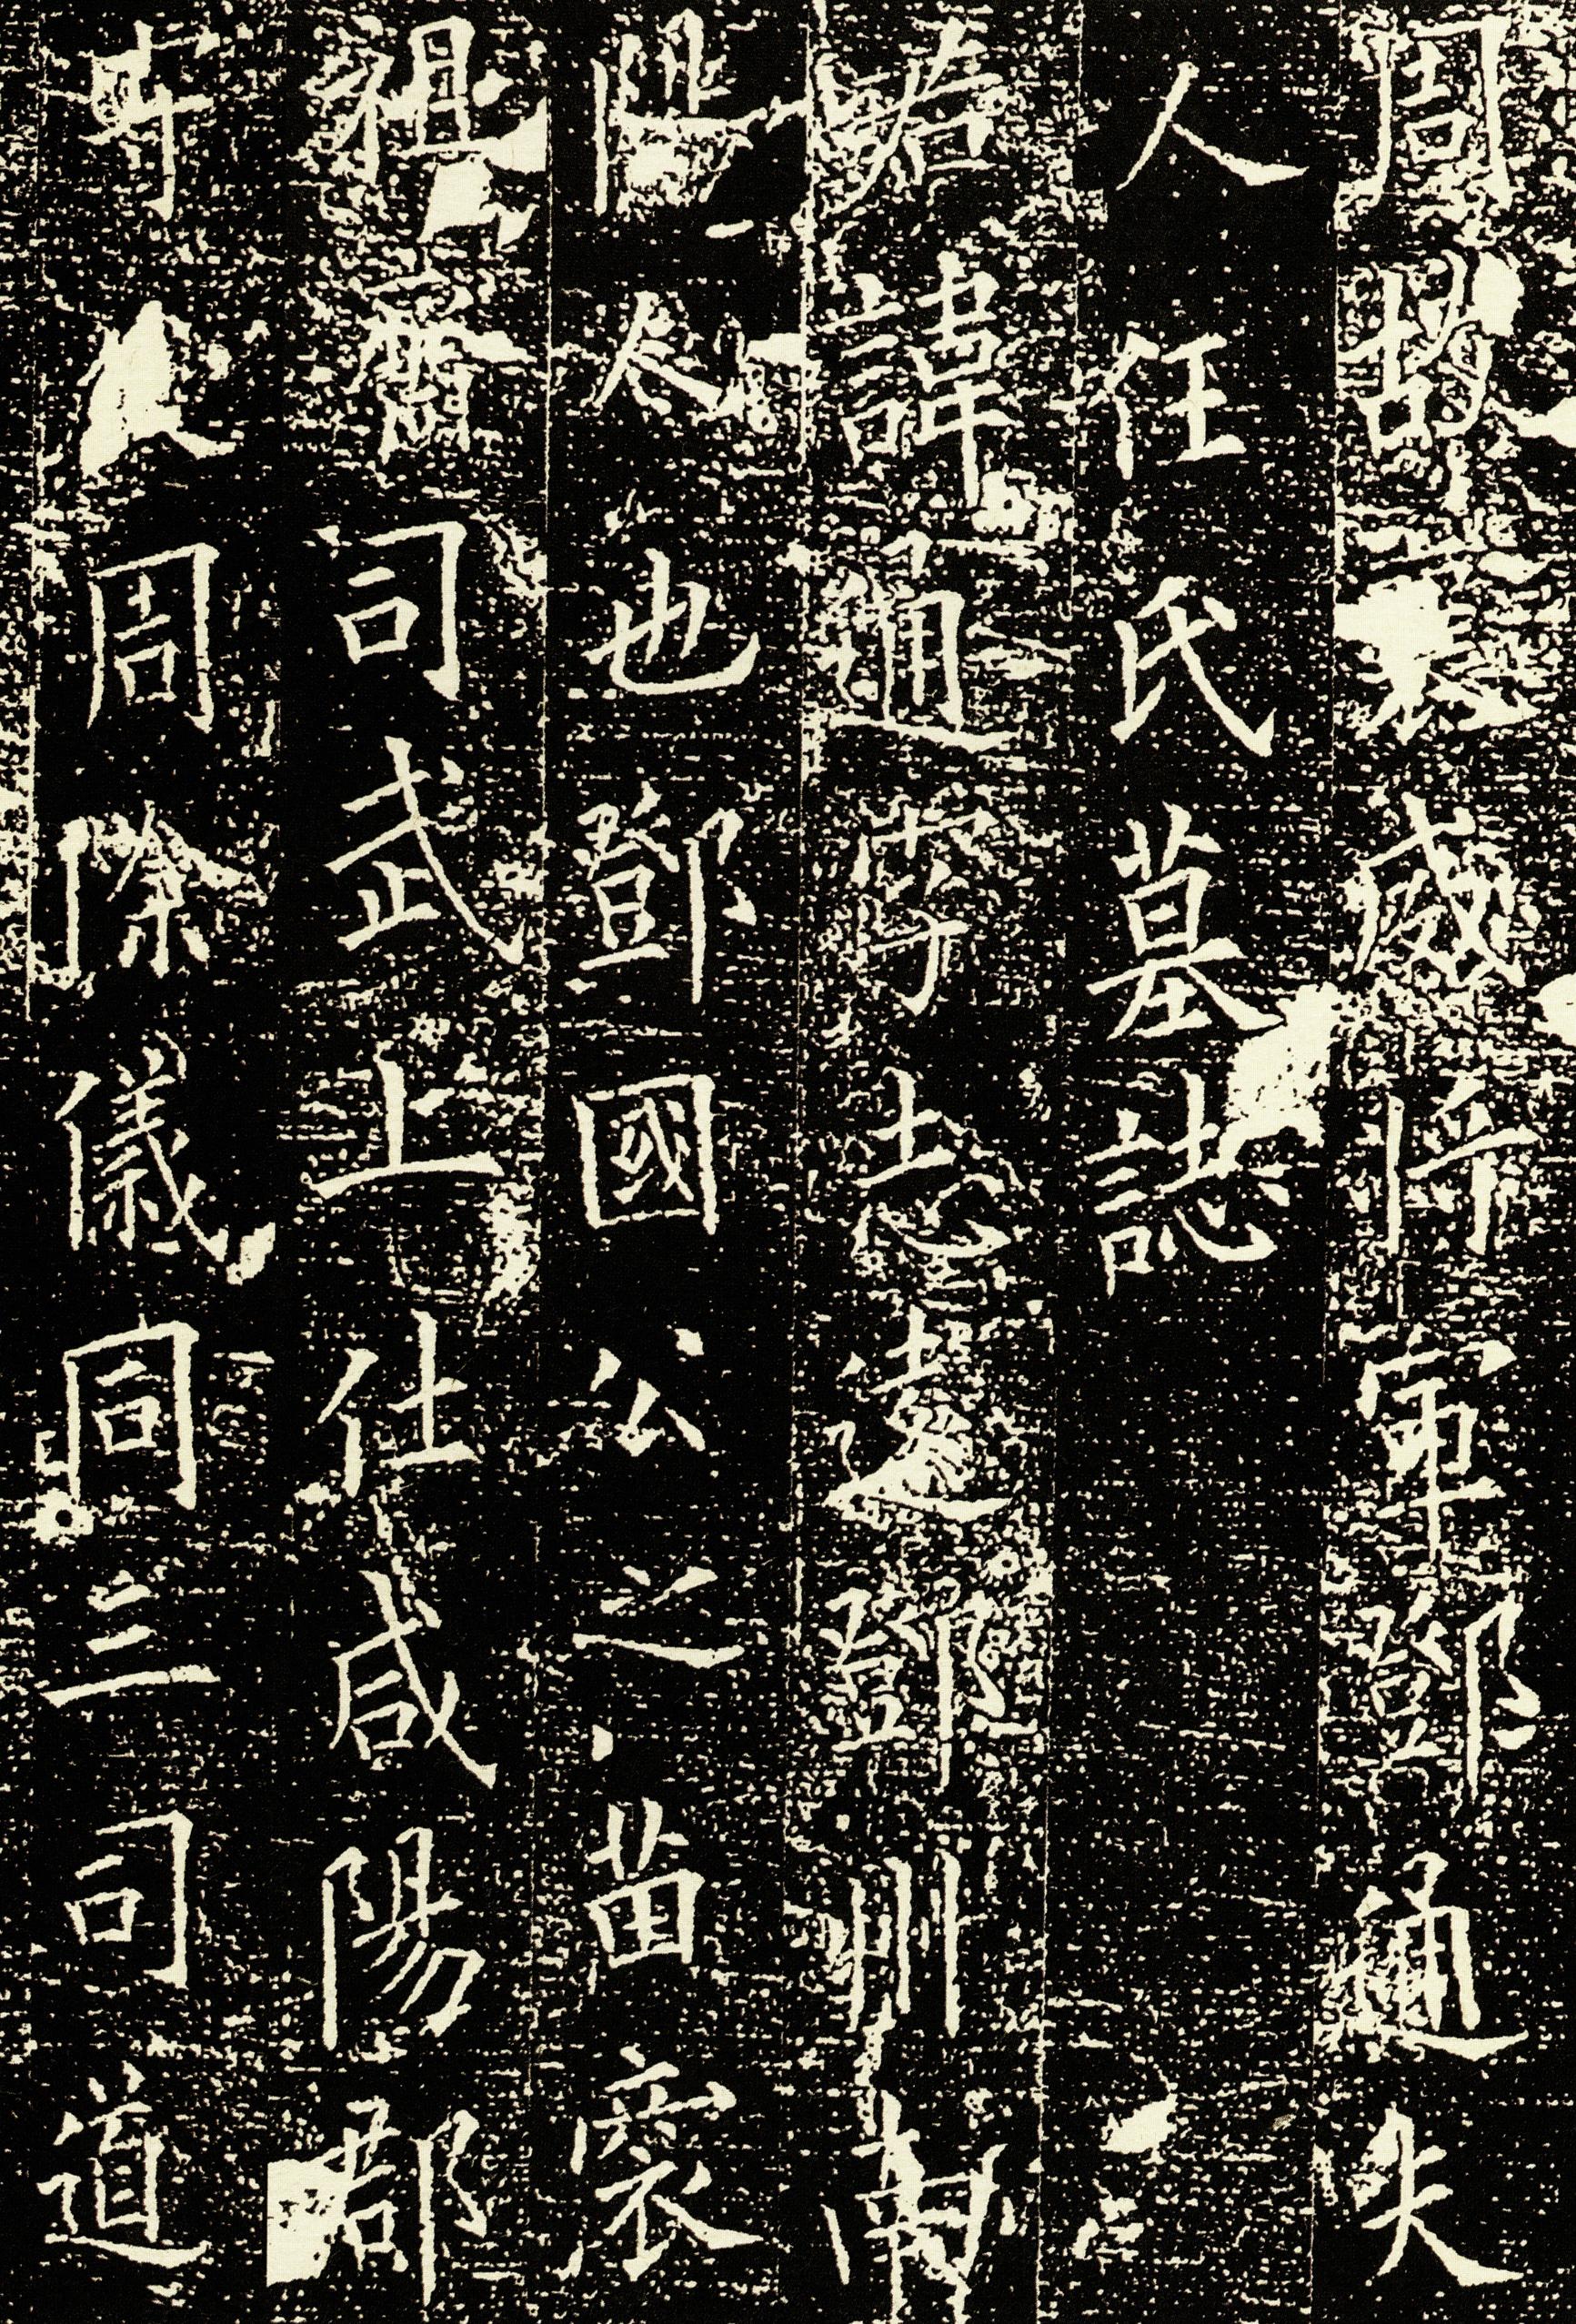 周故襄威將軍鄧通夫
人任氏墓誌
君諱通字志遠鄧州南
陽人也鄧國公之苗裔
祖齊司武上仕咸陽郡
守父周除儀同三司道